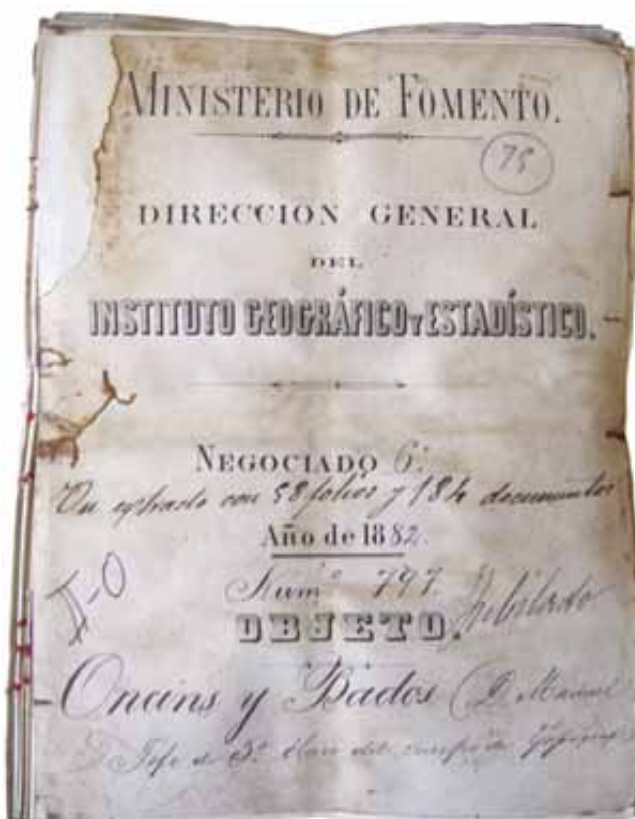 MINISTERIO DE FOMENTO.
75
DIRECCION GENERAL
DEL
INSTITUTO GEOGRÁFICO Y ESTADÍSTICO.
NEGOCIADO 6º
Un extracto con 58 folios y 184 documentos
Año de 1882
Numº 797
Jubilado
OBJETO.
Oncins y Bados (D. Manuel
Jefe de 3ª clase del cuerpo de